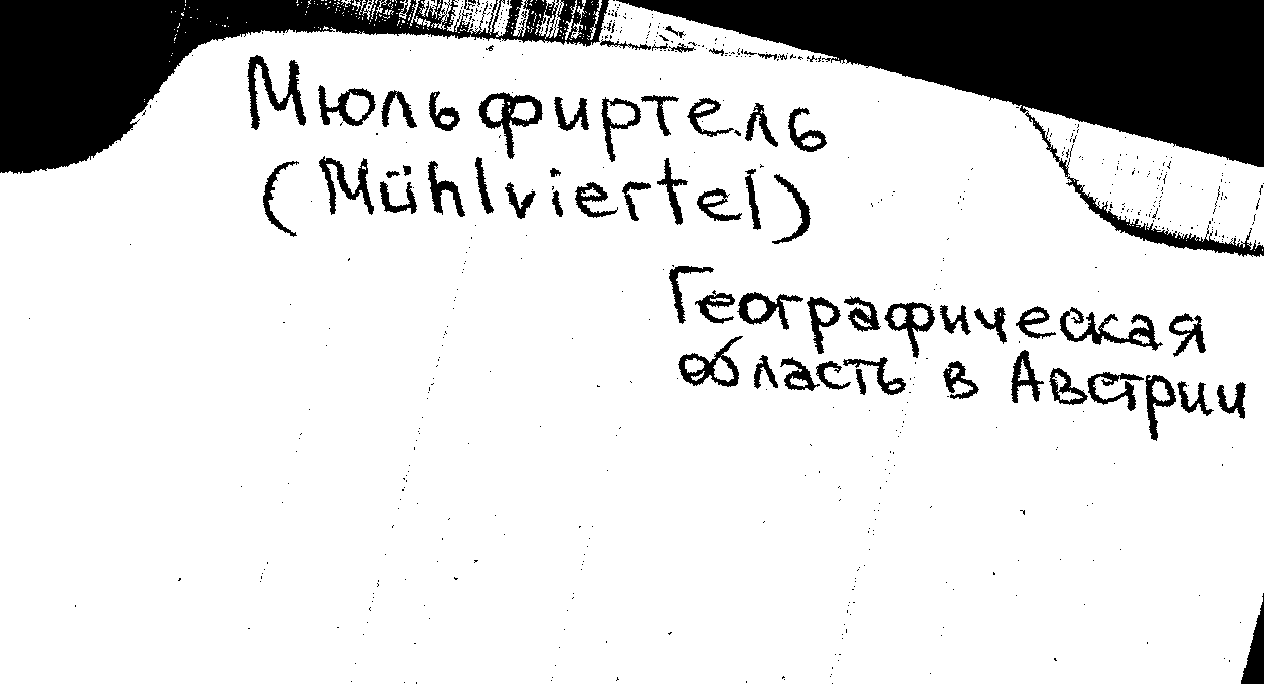 Мюльфиртель
(Mühlviertel)
Географическая
область в Австрии